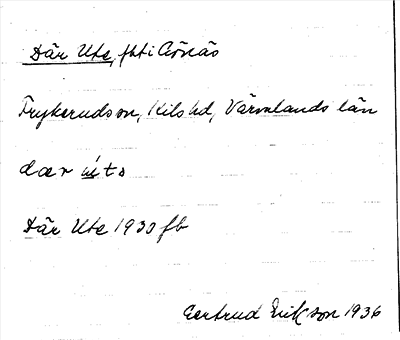 Där Ute, fhti Arnäs
Frykeruds sn, Kils hd, Värmlands län
dær ùts
Där Ute 1930 fb
Gertrud Erikson 1936